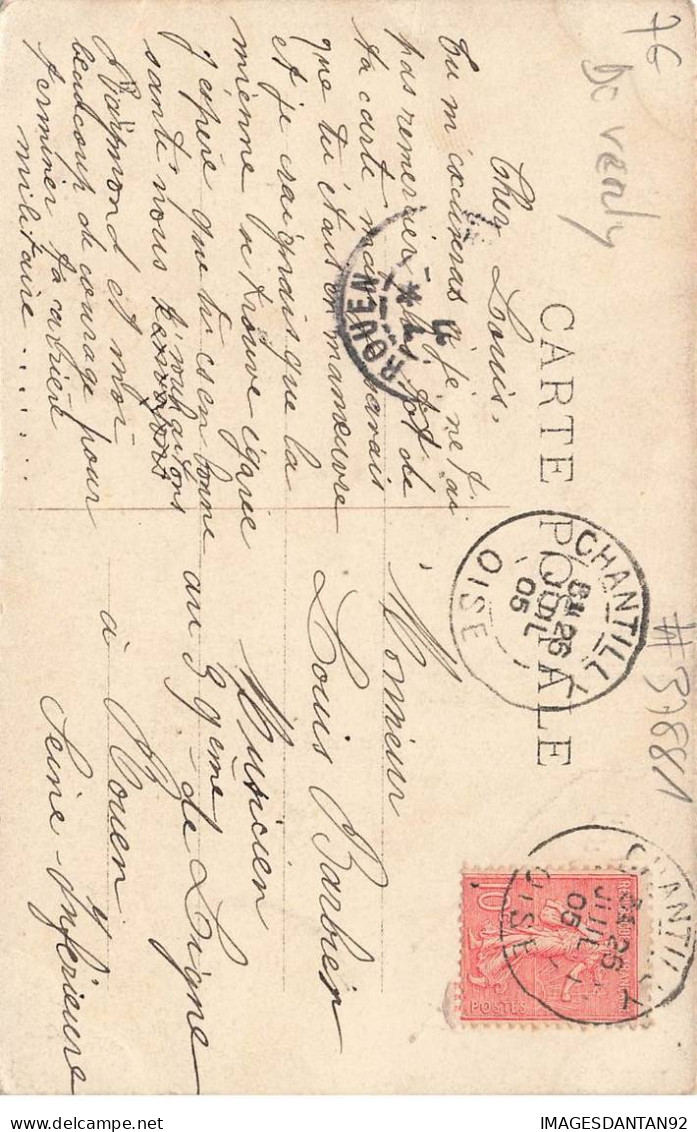 CARTE POSTALE
Cher Louis.
Tu m'excuseras si je ne t'ai
pas remercier de
ta carte mais
que tu étais en manœuvre
et je craignais que la
mienne se trouve égarée
j'espère que tu es en bonne
santé nous t'souhaitons
Raymond et moi
beaucoup de courage pour
terminer ta carrière
militaire......
Monsieur
Louis Barbier
Musicien
au 39eme de Ligne
à Rouen
Seine-Inférieure
ROUEN
CHANTILLY
26
JUIL
05
OISE
CHANTILLY
26
JUIL
05
OISE
10
POSTES
76
#37881
IMAGESDANTAN92